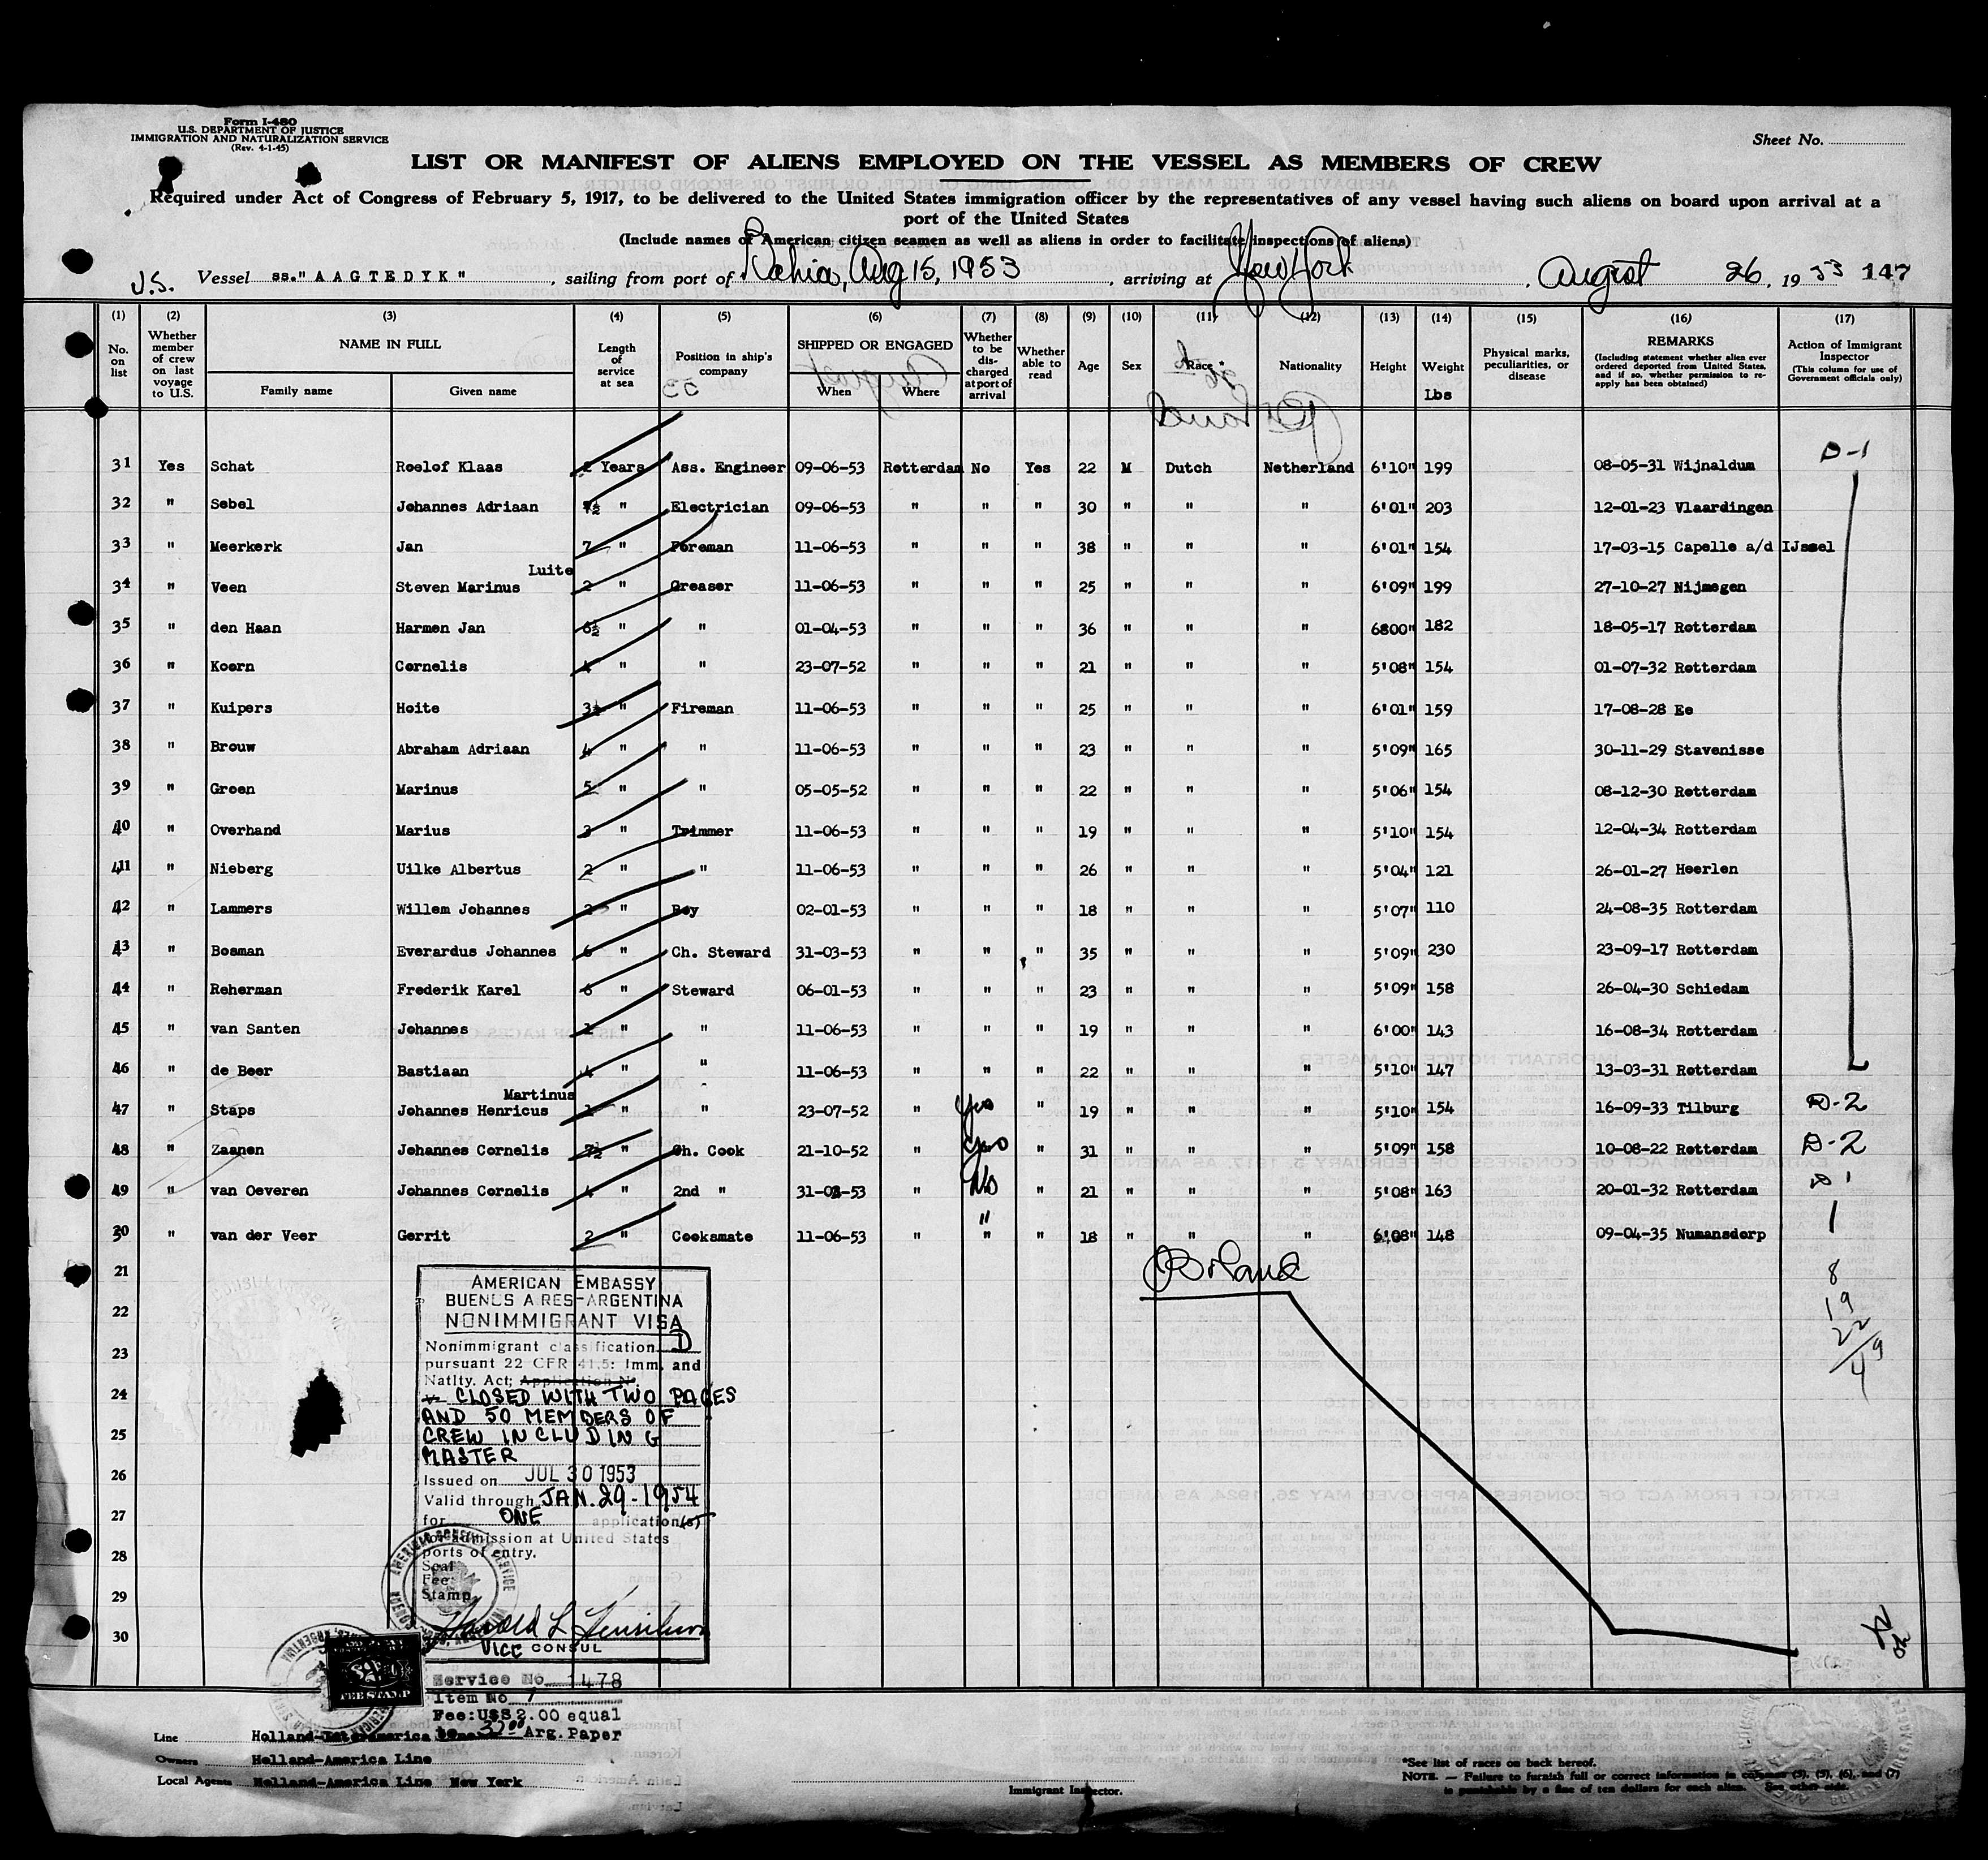 Form I-480
U.S. DEPARTMENT OF JUSTICE
IMMIGRATION AND NATURALIZATION SERVICE
(Rev. 4-1-45)
Sheet No.
LIST OR MANIFEST OF ALIENS EMPLOYED ON THE VESSEL AS MEMBERS OF CREW
Required under Act of Congress of February 5, 1917, to be delivered to the United States immigration officer by the representatives of any vessel having such aliens on board upon arrival at a
port of the United States
(Include names of American citizen seamen as well as aliens in order to facilitate inspections of aliens)
U.S. Vessel ss."AAGTEDYK", sailing from port of Bahia, Aug 15, 1953, arriving at New York, August 26, 1953 147
(1) No. on list (2) Whether member of crew on last voyage to U.S. (3) NAME IN FULL Family name Given name (4) Length of service at sea (5) Position in ship's company (6) SHIPPED OR ENGAGED When Where (7) Whether to be discharged at port of arrival (8) Whether able to read (9) Age (10) Sex (11) Race * (12) Nationality (13) Height (14) Weight Lbs (15) Physical marks, peculiarities, or disease (16) REMARKS (Including statement whether alien ever ordered deported from United States, and if so, whether permission to re-apply has been obtained) (17) Action of Immigrant Inspector (This column for use of Government officials only)
31 Yes Schat Roelof Klaas 2 Years Ass. Engineer 09-06-53 Rotterdam No Yes 22 M Dutch Netherland 6'10" 199 08-05-31 Wijnaldum D-1
32 " Sebel Johannes Adriaan 7½ " Electrician 09-06-53 " " " 30 " " " 6'01" 203 12-01-23 Vlaardingen
33 " Meerkerk Jan 7 " Foreman 11-06-53 " " " 38 " " " 6'01" 154 17-03-15 Capelle a/d IJssel
Luite
34 " Veen Steven Marinus 2 " Greaser 11-06-53 " " " 25 " " " 6'09" 199 27-10-27 Nijmegen
35 " den Haan Harmen Jan 6½ " " 01-04-53 " " " 36 " " " 6800" 182 18-05-17 Rotterdam
36 " Koorn Cornelis 4 " " 23-07-52 " " " 21 " " " 5'08" 154 01-07-32 Rotterdam
37 " Kuipers Hoite 3½ " Fireman 11-06-53 " " " 25 " " " 6'01" 159 17-08-28 Ee
38 " Brouw Abraham Adriaan 4 " " 11-06-53 " " " 23 " " " 5'09" 165 30-11-29 Stavenisse
39 " Groen Marinus 5 " " 05-05-52 " " " 22 " " " 5'06" 154 08-12-30 Rotterdam
40 " Overhand Marius 3 " Trimmer 11-06-53 " " " 19 " " " 5'10" 154 12-04-34 Rotterdam
41 " Nieberg Uilke Albertus 2 " " 11-06-53 " " " 26 " " " 5'04" 121 26-01-27 Heerlen
42 " Lammers Willem Johannes 2 " Boy 02-01-53 " " " 18 " " " 5'07" 110 24-08-35 Rotterdam
43 " Bosman Everardus Johannes 6 " Ch. Steward 31-03-53 " " " 35 " " " 5'09" 230 23-09-17 Rotterdam
44 " Reherman Frederik Karel 6 " Steward 06-01-53 " " " 23 " " " 5'09" 158 26-04-30 Schiedam
45 " van Santen Johannes 1 " " 11-06-53 " " " 19 " " " 6'00" 143 16-08-34 Rotterdam
46 " de Beer Bastiaan 4 " " 11-06-53 " " " 22 " " " 5'10" 147 13-03-31 Rotterdam
Martinus
47 " Staps Johannes Henricus 1 " " 23-07-52 " Yes " 19 " " " 5'10" 154 16-09-33 Tilburg D-2
48 " Zaanen Johannes Cornelis 7½ " Ch. Cook 21-10-52 " Yes " 31 " " " 5'09" 158 10-08-22 Rotterdam D-2
49 " van Oeveren Johannes Cornelis 4 " 2nd " 31-03-53 " No " 21 " " " 5'08" 163 20-01-32 Rotterdam D 1
50 " van der Veer Gerrit 2 " Cooksmate 11-06-53 " " " 18 " " " 6'08" 148 09-04-35 Numansdorp
21
22
23
24
25
26
27
28
29
30
8
19
22
49
AMERICAN EMBASSY
BUENOS AIRES-ARGENTINA
NONIMMIGRANT VISA
Nonimmigrant classification D
pursuant 22 CFR 41.5: Imm. and
Natlty. Act; Application N°.
CLOSED WITH TWO PAGES
AND 50 MEMBERS OF
CREW INCLUDING
MASTER
Issued on JUL 30 1953
Valid through JAN. 29-1954
for ONE application(s)
for admission at United States
ports of entry.
Seal
Fee:
Stamp
VICE CONSUL
Service No. 1478
Item No. 1
Fee: U$S 2.00 equal
to 37.00 Arg. Paper
FEE STAMP
Line Holland-America
Owners Holland-America Line
Local Agents Holland-America Line New York
Immigrant Inspector.
*See list of races on back hereof.
NOTE. — Failure to furnish full or correct information in columns (3), (5), (6), and (7)
is punishable by a fine of ten dollars for each alien. See other side.